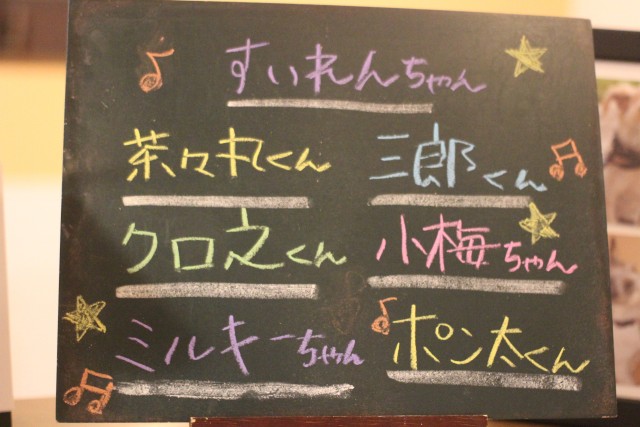 すいれんちゃん
茶々丸くん
三郎くん
クロ之くん
小梅ちゃん
ミルキーちゃん
ポン太くん